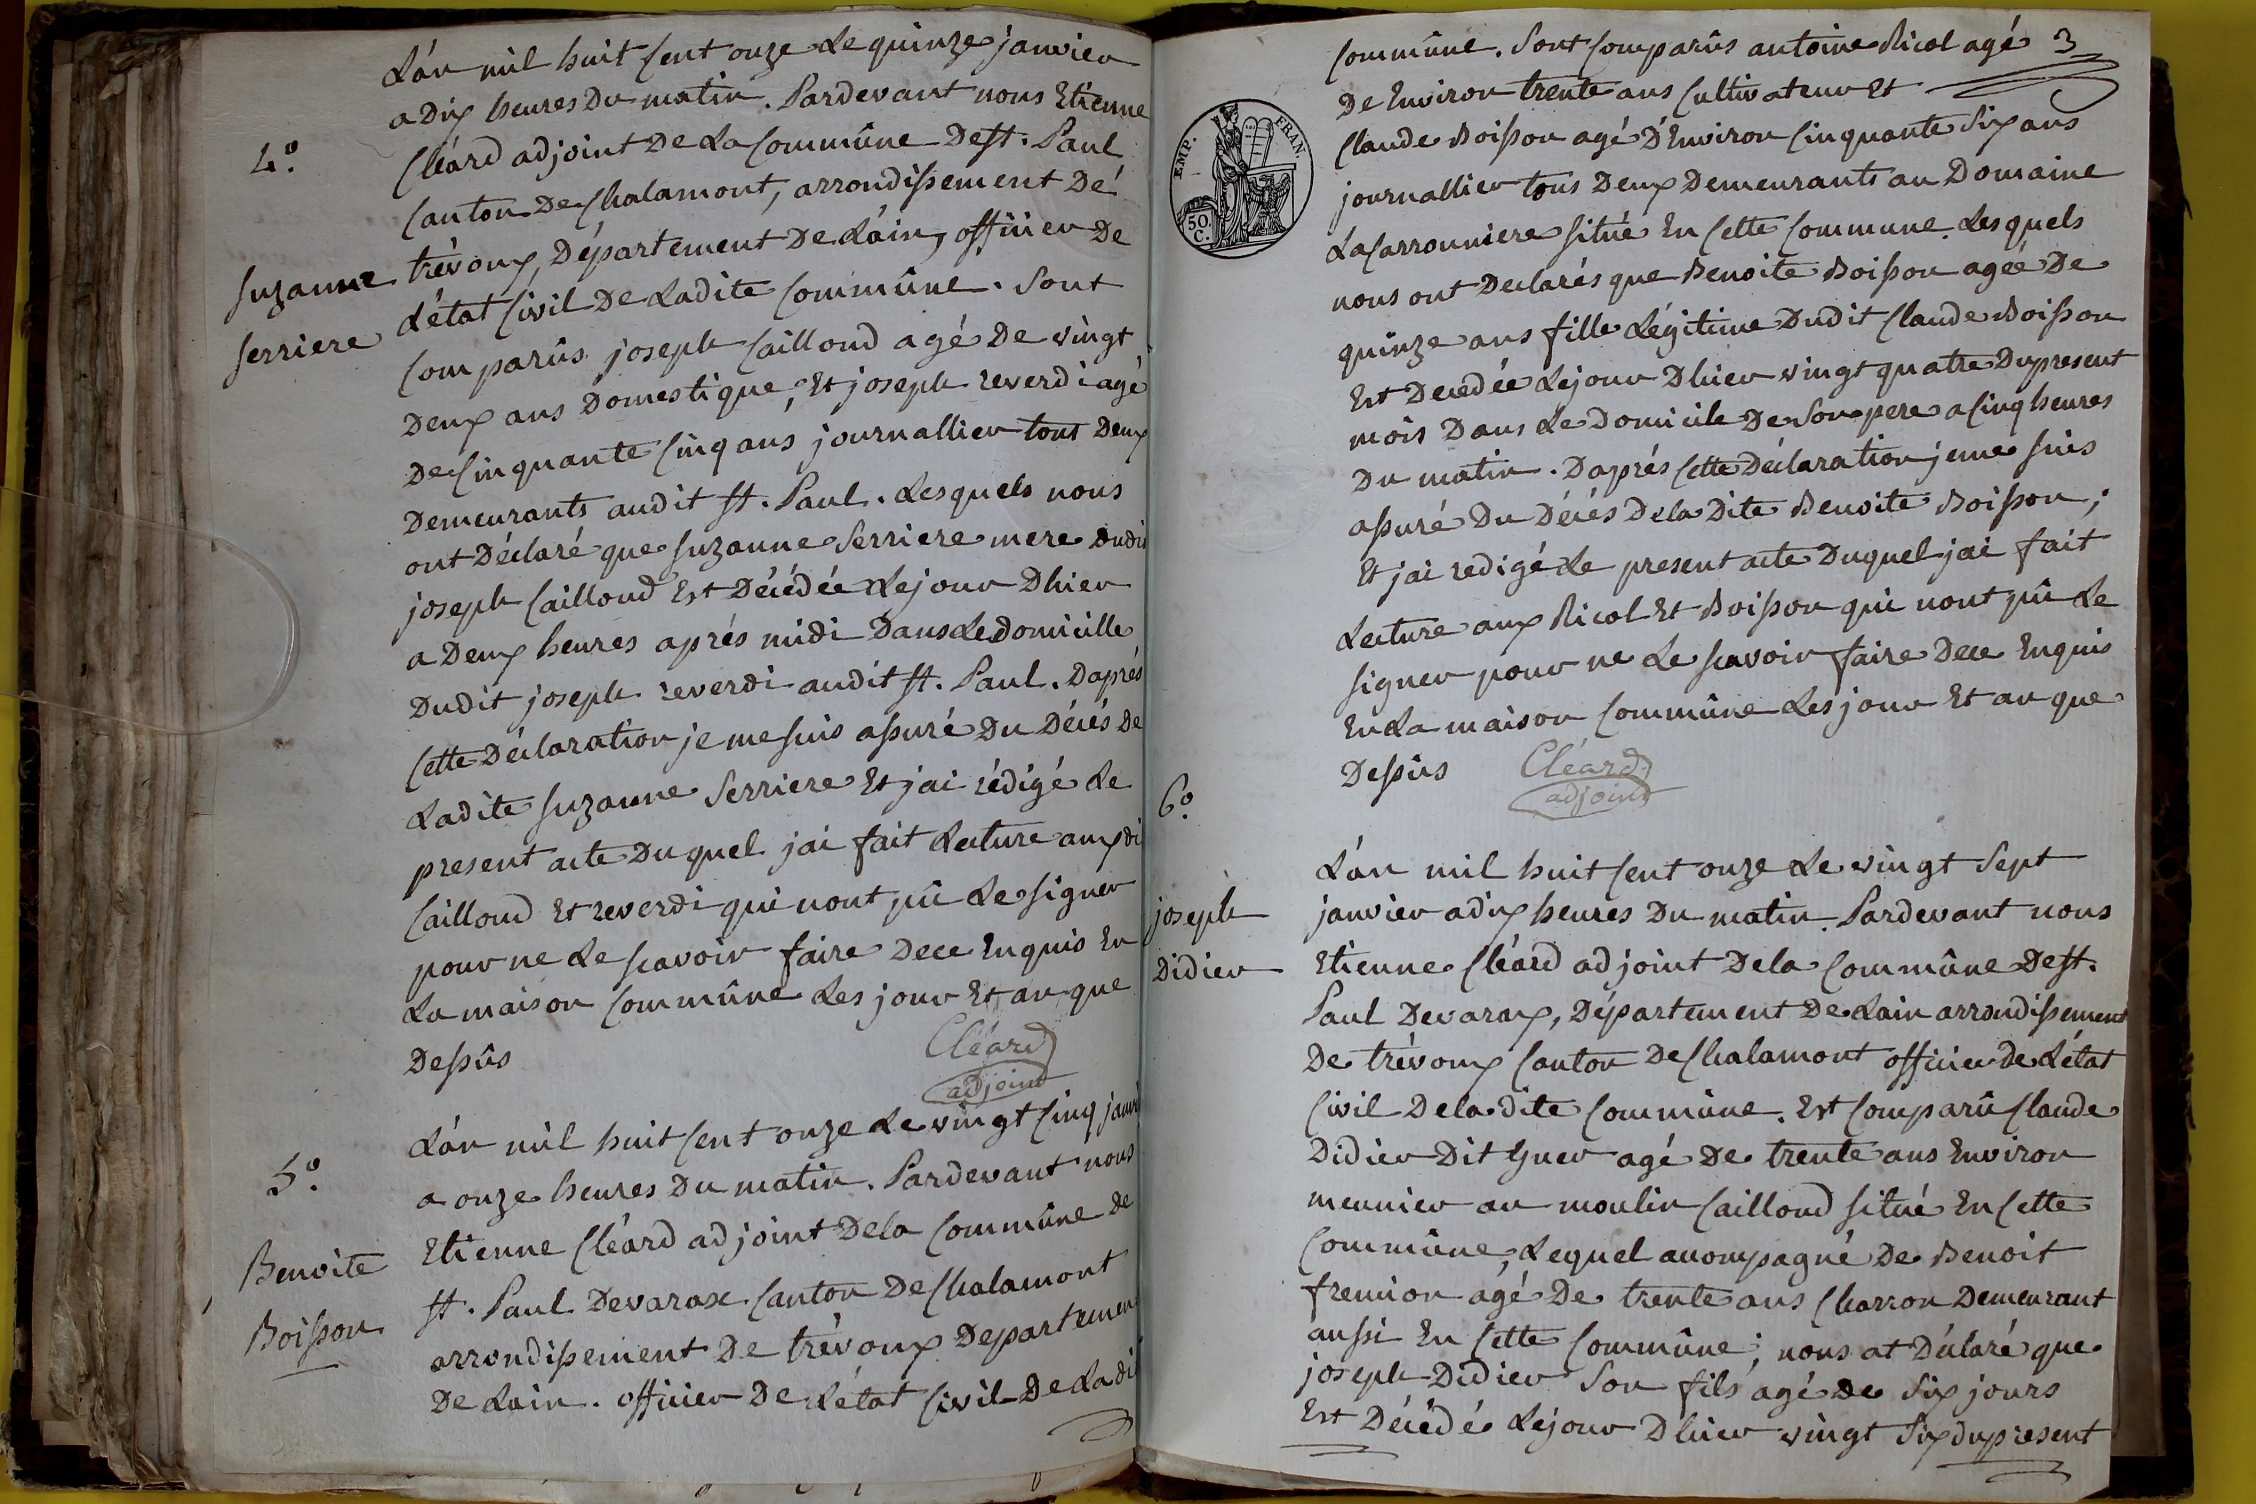 4.º
Suzanne
Serriere
L'an mil huit Cent onze Le quinze janvier
a Dix heures Du matin. Pardevant nous Etienne
Cléard adjoint De La Commûne De St. Paul
Canton De Chalamont, arrondissement De
trévoux, Département De L'ain, officier De
L'état Civil De Ladite Commûne. Sont
Comparûs joseph Cailloud agé De vingt
Deux ans Domestique, Et joseph reverdi agé
De Cinquante Cinq ans journallier tout Deux
Demeurants audit St. Paul. Lesquels nous
ont Déclaré que Suzanne Serriere mere dudi
joseph Cailloud Est Décédée Le jour Dhier
a Deux heures aprés midi Dans Le domicille
Dudit joseph reverdi audit St. Paul. Daprés
Cette Déclaration je me suis assuré Du Décés De
Ladite Suzanne Serriere Et jai rédigé Le
present acte Duquel jai fait Lecture auxdi
Caillond Et reverdi qui nont pû Le signer
pour ne Le scavoir faire Dece Enquis En
La maison Commûne Les jour Et an que
Dessûs
Cléard
adjoint
5.º
Benoite
Boisson
L'an mil huit Cent onze Le vingt Cinq janvi
a onze heures Du matin. Pardevant nous
Etienne Cléard adjoint Dela Commûne de
St. Paul Devarax Canton De Chalamont
arrondissement De trévoux Departement
De Lain. officier De L'état Civil De Ladi
3
EMP. FRAN.
50.
C.
Commûne. Sont Comparûs antoine Ricol agé
De Environ trente ans Cultivateur Et
Claude Boisson agé D'Environ Cinquante Six ans
journallier tous Deux Demeurants au Domaine
La Carronniere situé En Cette Commune. Lesquels
nous ont Declarés que Benoite Boisson agée De
quinze ans fille Légitime Dudit Claude Boisson
Est Decedée Le jour Dhier vingt quatre Du present
mois Dans Le Domicile De Son pere a Cinq heures
Du matin. Daprés Cette Déclaration je me suis
assuré Du Décés Dela Dite Benoite Boisson;
Et jai redigé Le present acte Duquel jai fait
Lecture aux Ricol Et Boisson qui nont pû Le
signer pour ne Le scavoir faire Dece Enquis
En La maison Commûne Les jour Et an que
Dessûs
Cléard
adjoint
6º.
joseph
Didier
L'an mil huit Cent onze Le vingt Sept
janvier a dix heures Du matin. Pardevant nous
Etienne Cléard adjoint Dela Commûne De St.
Paul Devarax, Département De Lain arrondissement
De trévoux Canton De Chalamont officier De L'état
Civil Dela dite Commûne. Est Comparû Claude
Didier Dit agé De trente ans Environ
meunier au moulin Cailloud situé En Cette
Commûne, Lequel accompagné De Benoit
fremion agé De trente ans Charron Demeurant
aussi En Cette Commûne; nous at Déclaré que
joseph Didier Son fils agé De Six jours
Est Décédé Le jour Dhier vingt Six du present